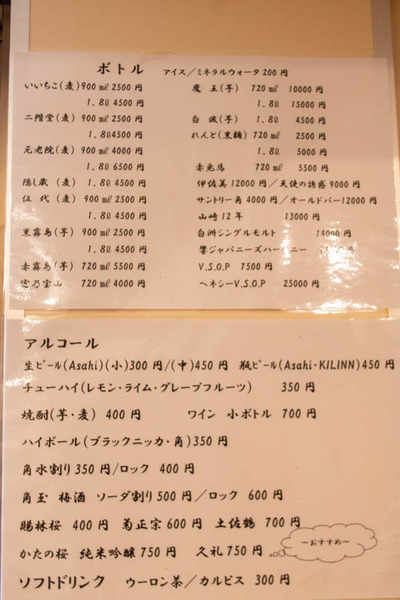 ボトル アイス／ミネラルウォータ 200 円
いいちこ(麦) 900 ㎖ 2500 円 魔 王(芋) 720 ㎖ 10000 円
1.8ℓ 4500 円 1.8ℓ 15000 円
二階堂(麦) 900 ㎖ 2500 円 白 波(芋) 1.8ℓ 4500 円
1.8ℓ4500 円 れんと(黒糖) 720 ㎖ 2500 円
元老院(麦) 900 ㎖ 4000 円 1.8ℓ 5000 円
1.8ℓ 6500 円 赤兎馬 720 ㎖ 5500 円
隠し蔵 (麦) 1.8ℓ 4500 円 伊佐美 12000 円／天使の誘惑 9000 円
伍 代(麦) 900 ㎖ 2500 円 サントリー角 4000 円／オールドパー12000 円
1.8ℓ 4500 円 山崎 12 年 13000 円
黒霧島(芋) 900 ㎖ 2500 円 白洲シングルモルト 14000 円
1.8ℓ 4500 円 響ジャパニーズハーモニー 円
赤霧島(芋) 720 ㎖ 5500 円 V.S.O.P 7500 円
720 ㎖ 4000 円 ヘネシーV.S.O.P 25000 円
アルコール
生ビール(Asahi)(小)300 円/(中)450 円 瓶ビール(Asahi・KILINN)450 円
チューハイ(レモン・ライム・グレープフルーツ) 350 円
焼酎(芋・麦) 400 円 ワイン 小ボトル 700 円
ハイボール(ブラックニッカ・角)350 円
角水割り 350 円/ロック 400 円
角玉 梅酒 ソーダ割り 500 円／ロック 600 円
賜杯桜 400 円 菊正宗 600 円 土佐鶴 700 円
かたの桜 純米吟醸 750 円 久礼 750 円 ～おすすめ～
ソフトドリンク ウーロン茶／カルピス 300 円